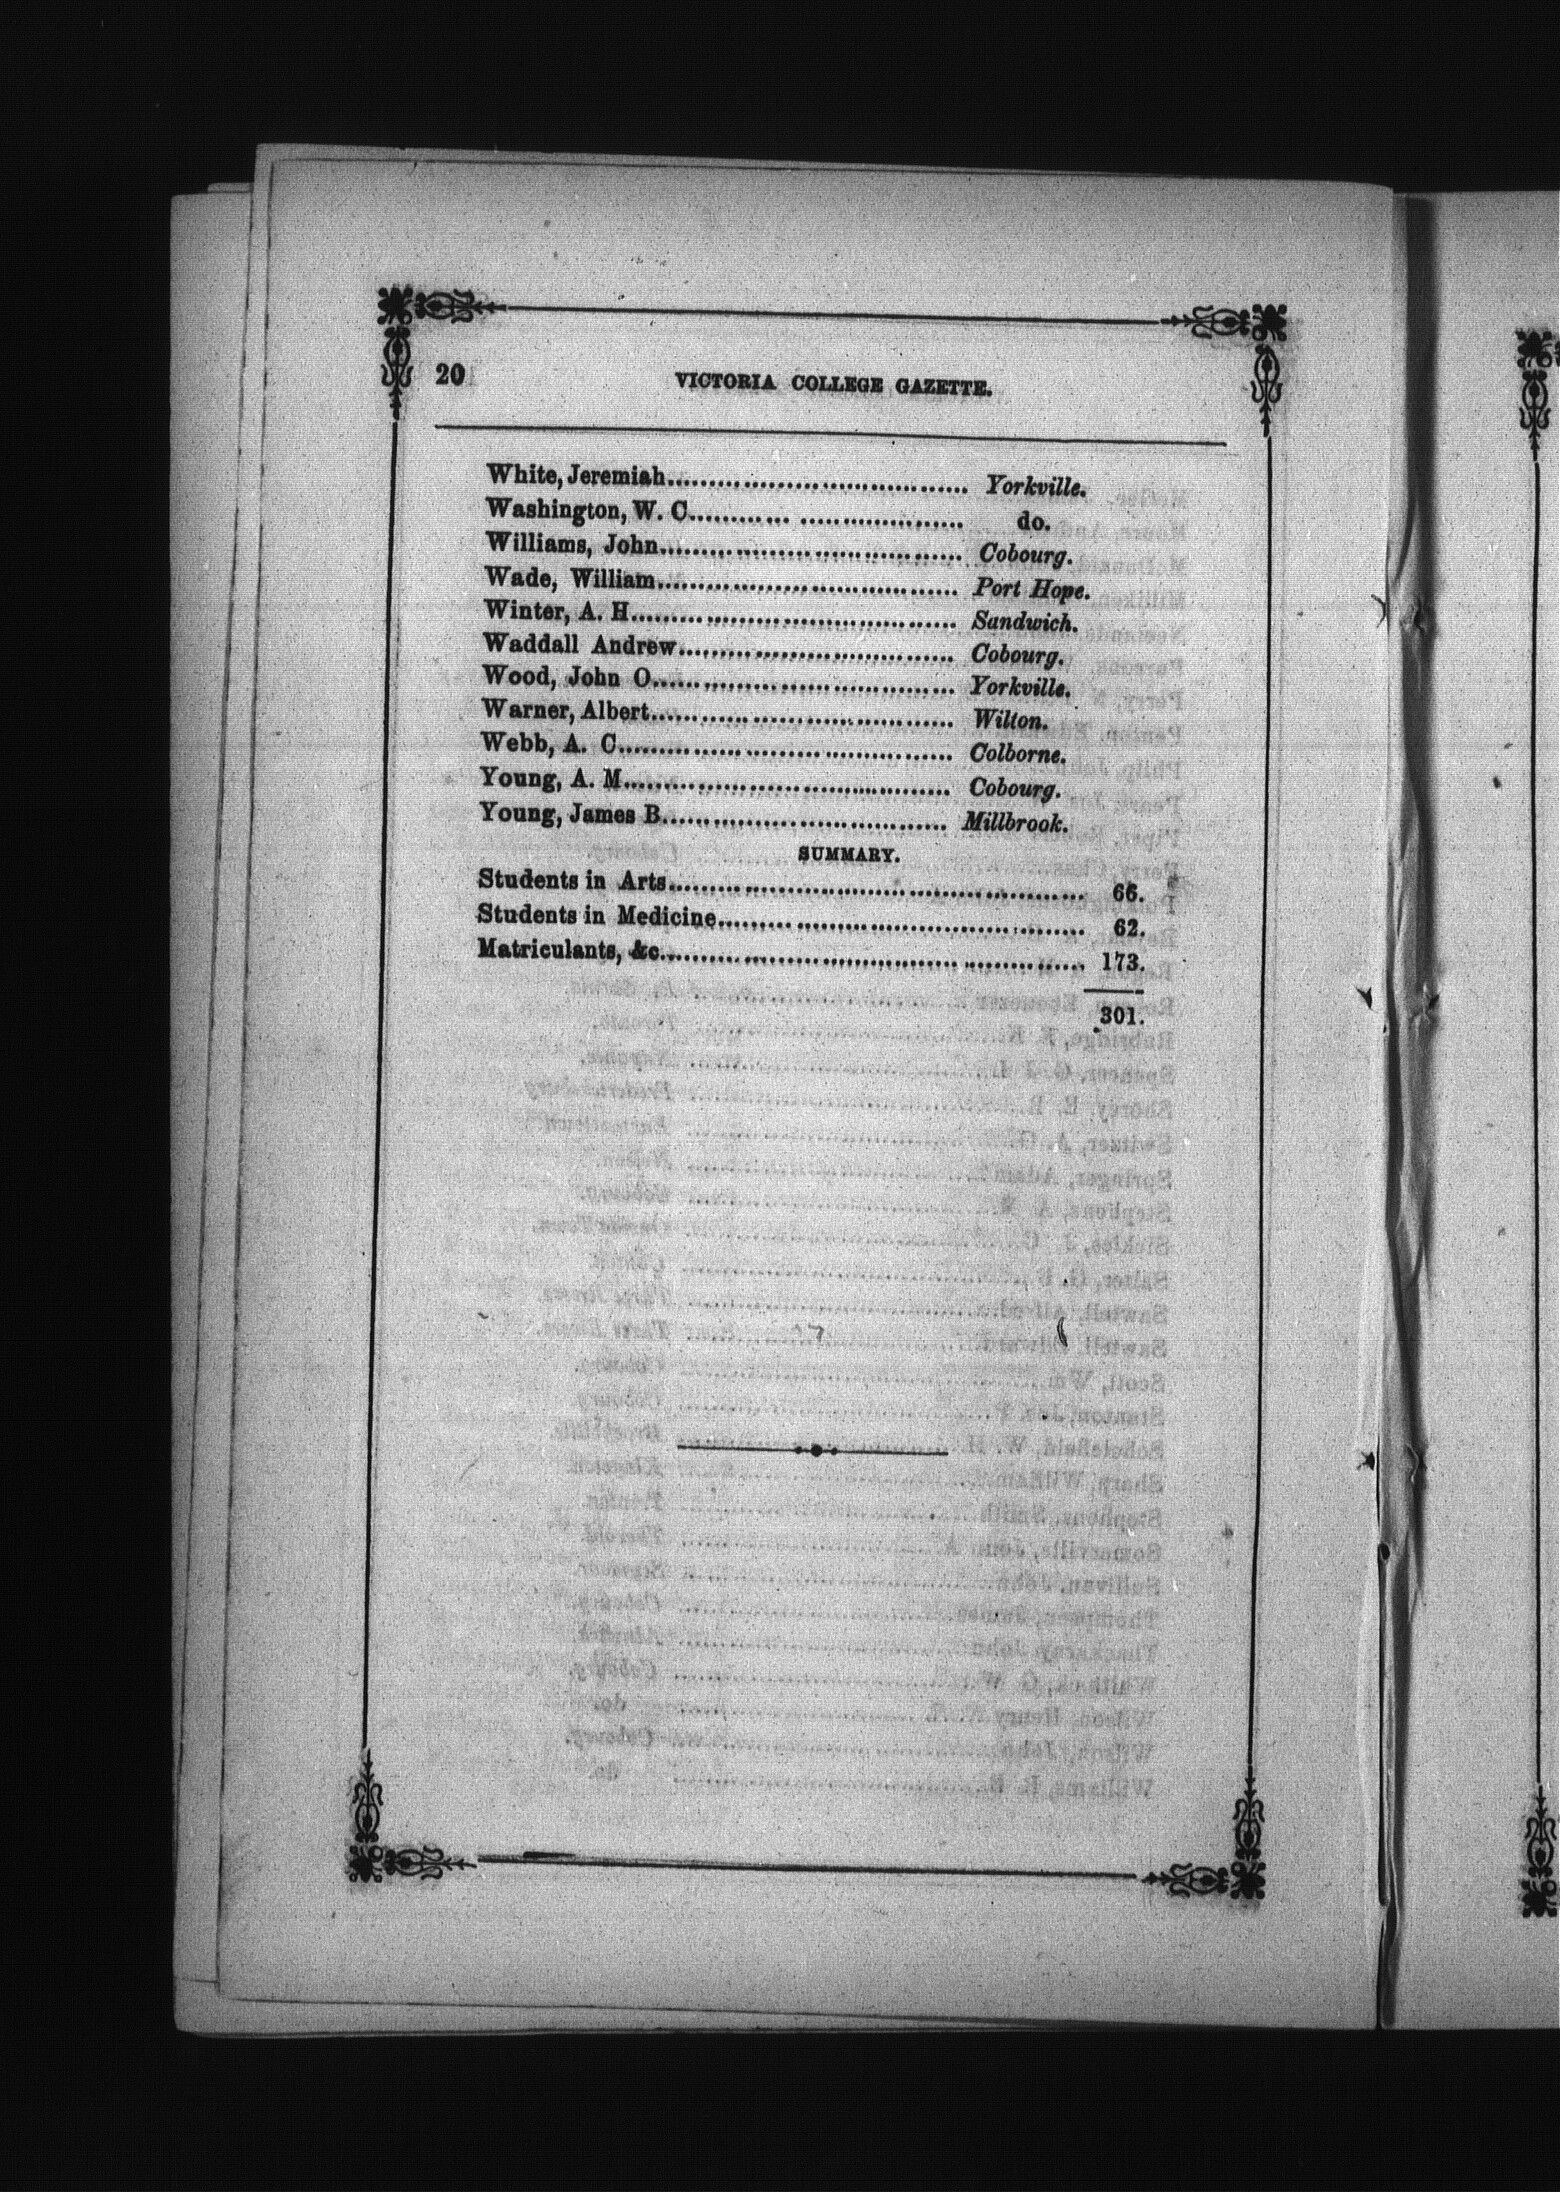 20 VICTORIA COLLEGE GAZETTE.
White, Jeremiah.................................... Yorkville.
Washington, W. C............ .................... do.
Williams, John.................................... Cobourg.
Wade, William.................................... Port Hope.
Winter, A. H....................................... Sandwich.
Waddall Andrew................................. Cobourg.
Wood, John O.................................... Yorkville.
Warner, Albert.................................... Wilton.
Webb, A. C........................................ Colborne.
Young, A. M....................................... Cobourg.
Young, James B.................................. Millbrook.
SUMMARY.
Students in Arts.................................................. 66.
Students in Medicine............................................ 62.
Matriculants, &c.................................................. 173.
301.